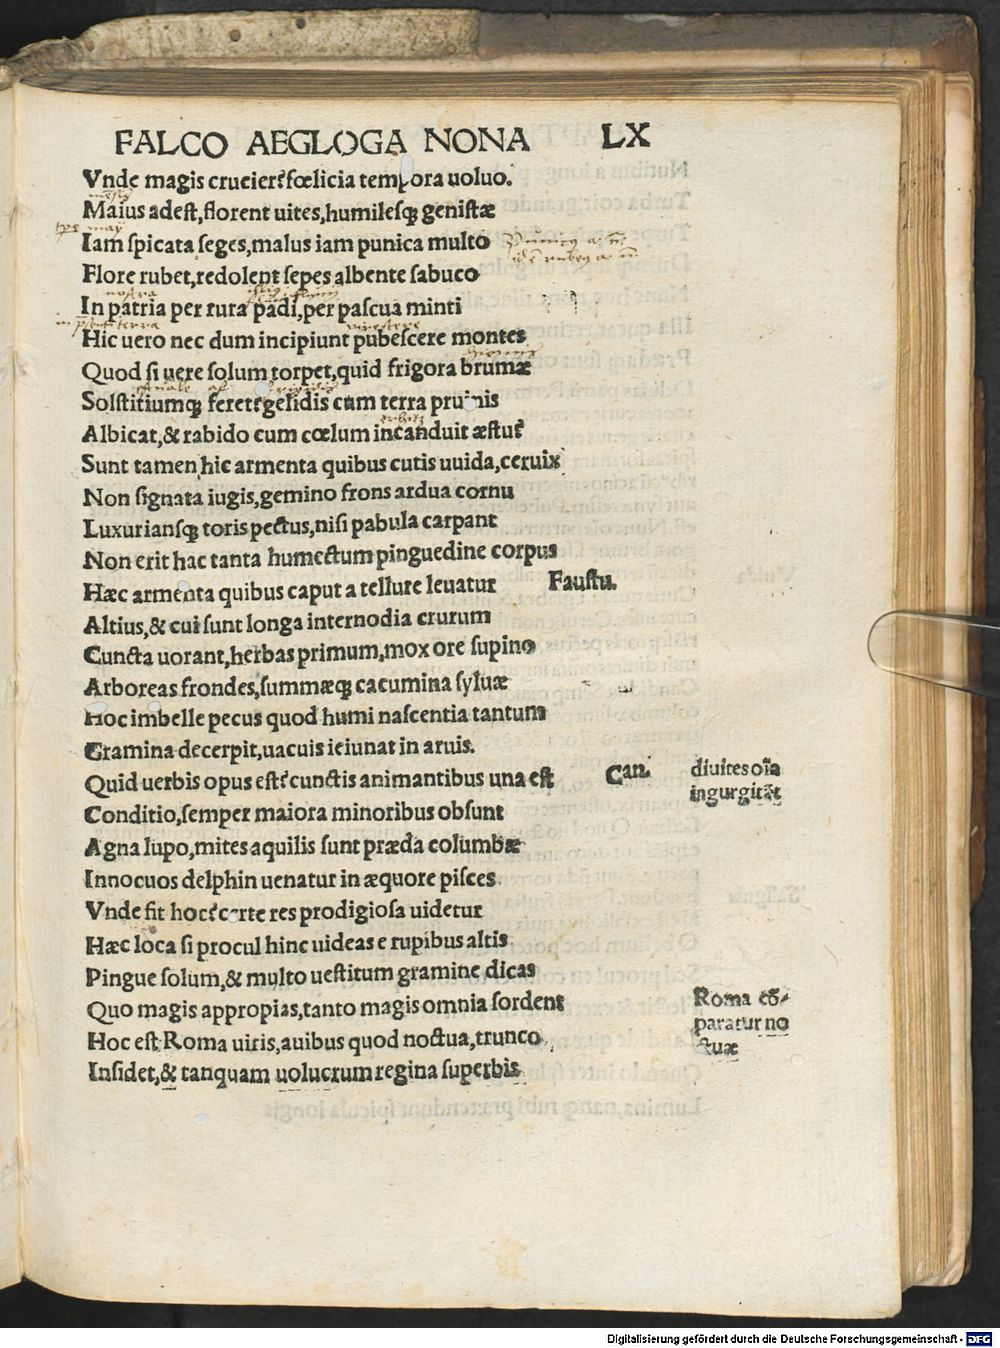 FALCO AEGLOGA NONA LX
Vnde magis crucier? fœlicia tempora uoluo.
Maius adest, florent uites, humilesq; genistæ
Iam spicata seges, malus iam punica multo
Flore rubet, redolent sepes albente sabuco
nostra
In patria per rura padi, per pascua minti
terra
Hic uero nec dum incipiunt pubescere montes
Quod si uere solum torpet, quid frigora brumæ
Solstitiumq; feret? gelidis cum terra pruinis
Albicat, & rabido cum cœlum incanduit æstu?
Sunt tamen hic armenta quibus cutis uuida, ceruix
Non signata iugis, gemino frons ardua cornu
Luxuriansq; toris pectus, nisi pabula carpant
Non erit hac tanta humectum pinguedine corpus
Hæc armenta quibus caput a tellure leuatur Faustu.
Altius, & cui sunt longa internodia crurum
Cuncta uorant, herbas primum, mox ore supino
Arboreas frondes, summæq; cacumina syluæ
Hoc imbelle pecus quod humi nascentia tantum
Gramina decerpit, uacuis ieiunat in aruis.
Quid uerbis opus est? cunctis animantibus una est Can. diuites oīa
ingurgitāt
Conditio, semper maiora minoribus obsunt
Agna lupo, mites aquilis sunt præda columbæ
Innocuos delphin uenatur in æquore pisces
Vnde fit hoc? certe res prodigiosa uidetur
Hæc loca si procul hinc uideas e rupibus altis
Pingue solum, & multo uestitum gramine dicas
Quo magis appropias, tanto magis omnia sordent Roma cō-
paratur no
Hoc est Roma uiris, auibus quod noctua, trunco
ctuæ
Insidet, & tanquam uolucrum regina superbis
Digitalisierung gefördert durch die Deutsche Forschungsgemeinschaft - DFG